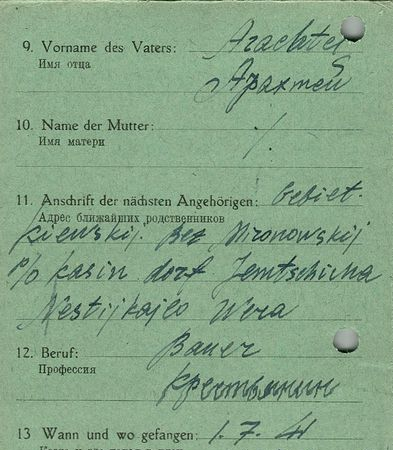 9. Vorname des Vaters:
Имя отца
10. Name der Mutter: /.
Имя матери
11. Anschrift der nächsten Angehörigen: Gebiet.
Адрес ближайших родственников
Kiewskij. Bez Mironowskij
p/o Kasin dorf Jemtschicha
Wera
12. Beruf: Bauer
Профессия Крестьянин
13 Wann und wo gefangen: 1. 7. 41